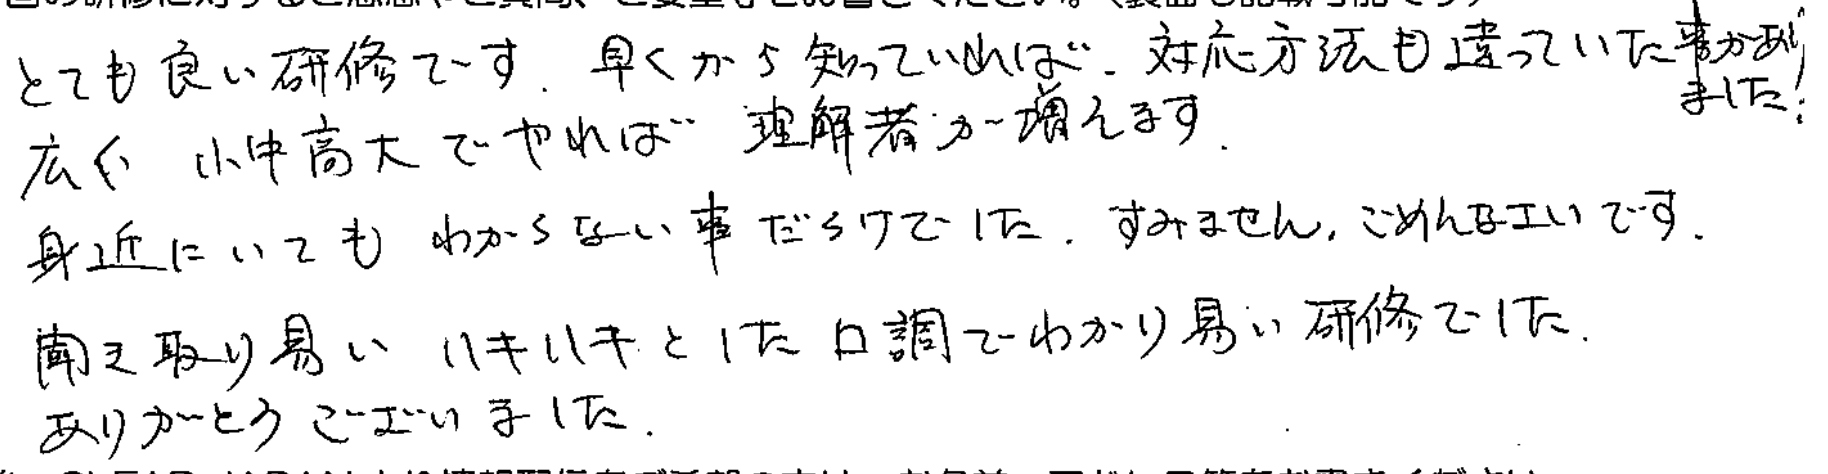 とても良い研修です. 早くから知っていれば. 対応方法も違っていた事があり
ました.
広く 小中高大でやれば 理解者が増えます.
身近にいても わからない事だらけでした. すみません, ごめんなさいです.
聞き取り易い ハキハキとした口調でわかり易い研修でした.
ありがとうございました.